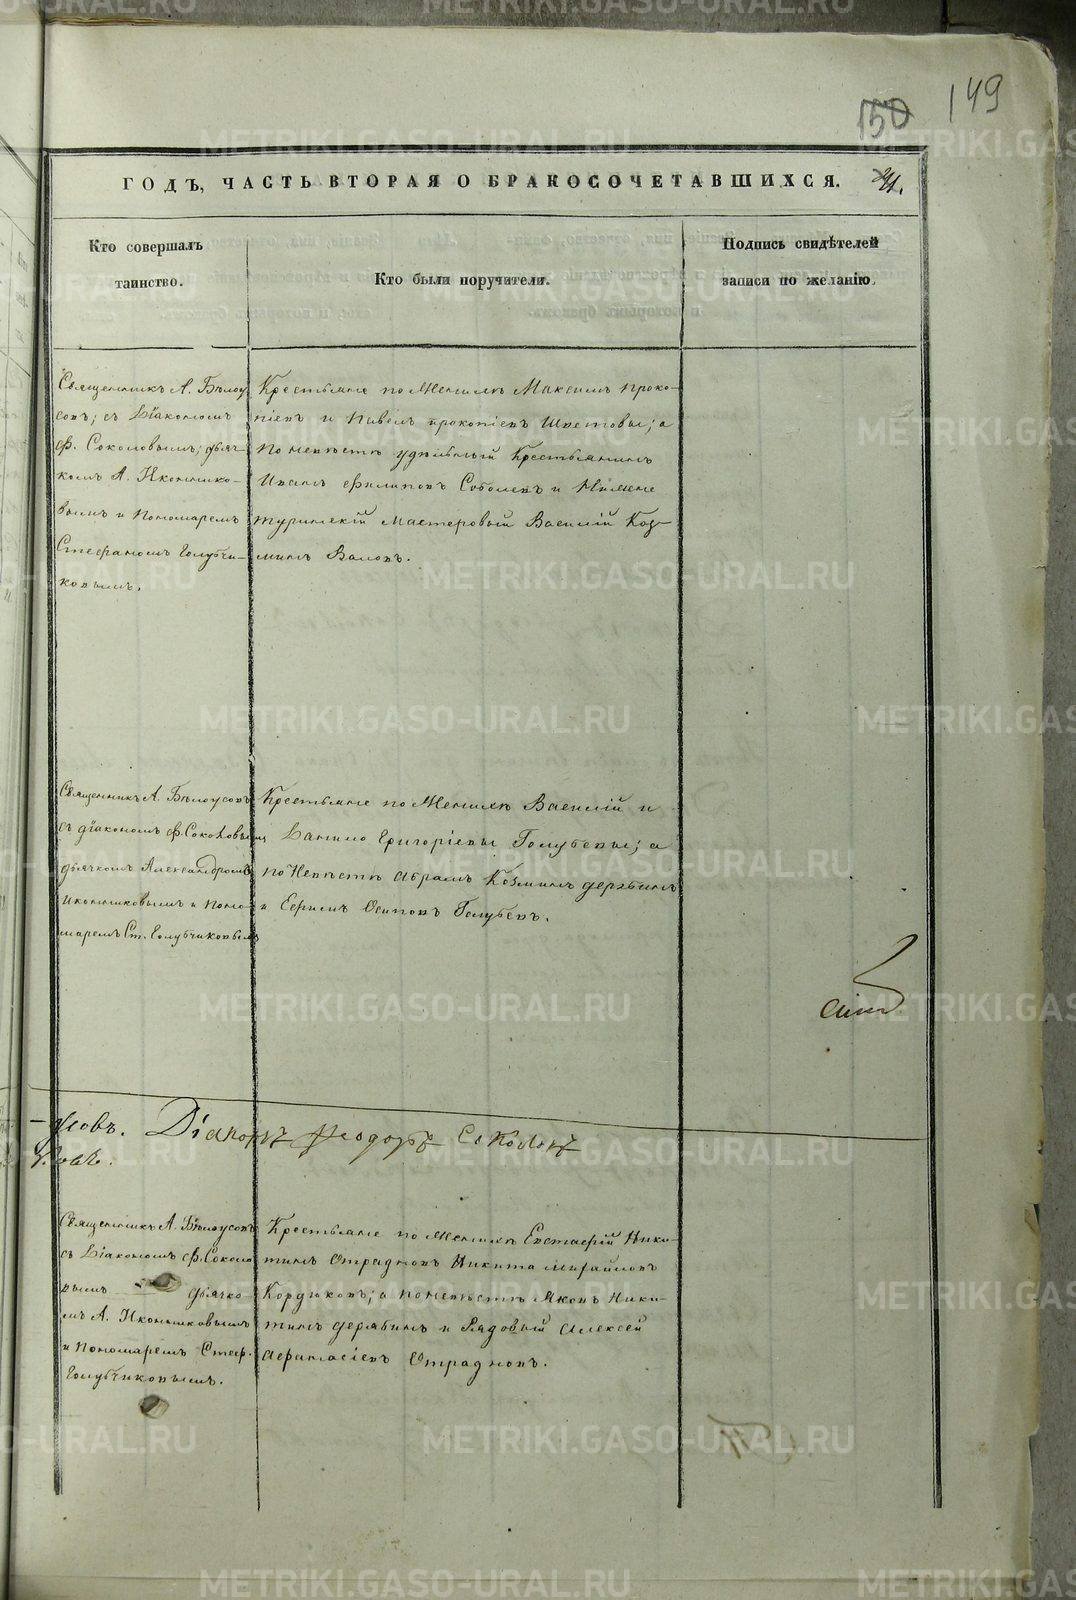 150 149
ГОДЪ, ЧАСТЬ ВТОРАЯ О БРАКОСОЧЕТАВШИХСЯ.
Кто совершалъ
таинство.
Кто были поручители.
Подпись свидѣтелей
записи по желанію.
Священникъ А. Бѣлоу-
совъ; съ Діакономъ
Ф. Соколовымъ; дьяч-
комъ А. Иконнико-
вымъ и Пономаремъ
Стефаномъ Голубчи-
ковымъ.
Крестьяне по Женихѣ Максимъ Проко-
піевъ и Павелъ Прокопіевъ Шветовы; а
по невѣстѣ удѣльный Крестьянинъ
Иванъ Филиповъ Соболевъ и Нижне
туринскій мастеровый Василій Коз-
минъ Валовъ.
Священникъ А. Бѣлоусовъ
съ діакономъ Ф. Соколовымъ
дьячкомъ Александромъ
Иконниковымъ и Поно-
маремъ Ст. Голубчиковымъ
Крестьяне по Женихѣ Василій и
Данило Григоріевы Голубевы; а
по Невѣстѣ Абрамъ Козминъ Дерябинъ
и Ефимъ Осиповъ Голубевъ.
усовъ. Діаконъ Ѳеодоръ Соколовъ
Священникъ А. Бѣлоусовъ
съ Діакономъ Ф. Соколо
вымъ дьячко
мъ А. Иконниковымъ
и Пономаремъ Стеф.
Голубчиковымъ.
Крестьяне по Женихѣ Евстафій Ники-
тинъ Отрадновъ Никита Михайловъ
Кордюковъ; а по невѣстѣ Яковъ Ники-
тинъ Дерябинъ и Рядовый Алексей
Афанасіевъ Отрадновъ.
METRIKI.GASO-URAL.RU